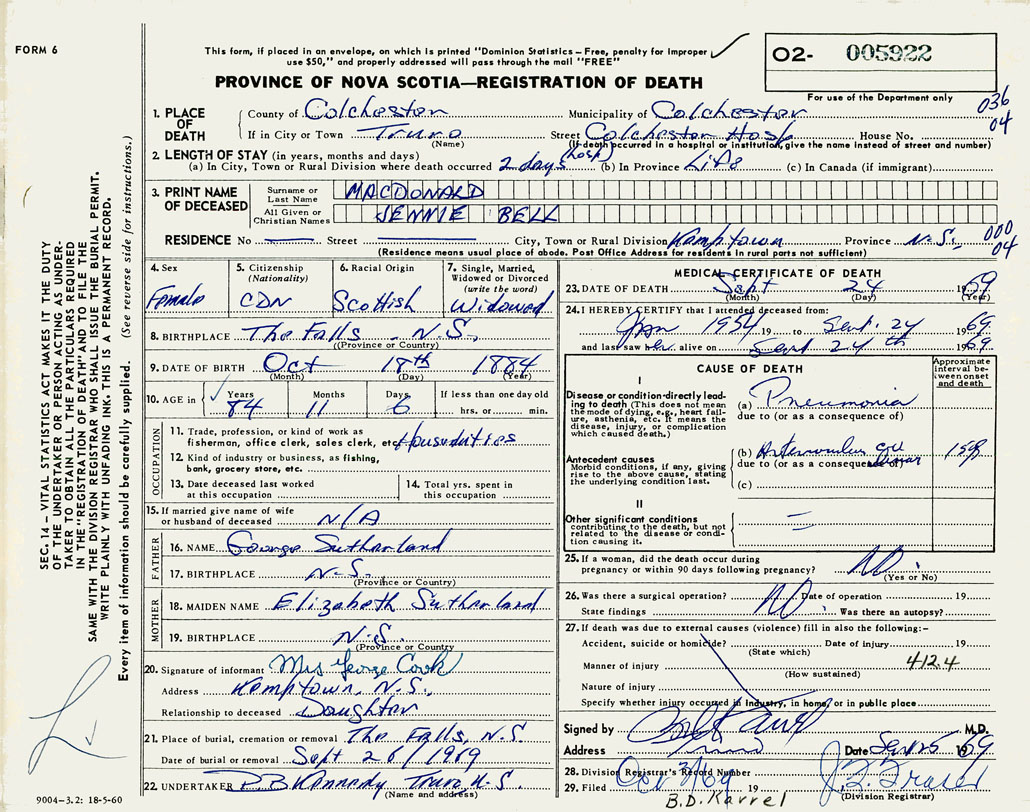 FORM 6
This form, if placed in an envelope, on which is printed "Dominion Statistics – Free, penalty for improper
use $50," and properly addressed will pass through the mail "FREE"
O2- 005922
For use of the Department only
PROVINCE OF NOVA SCOTIA—REGISTRATION OF DEATH
036
04
1. PLACE OF DEATH
County of Colchester Municipality of Colchester
If in City or Town Truro Street Colchester Hosp House No.
(Name) (If death occurred in a hospital or institution, give the name instead of street and number)
2. LENGTH OF STAY (in years, months and days)
(a) In City, Town or Rural Division where death occurred 2 days (hosp) (b) In Province Life (c) In Canada (if immigrant)
3. PRINT NAME OF DECEASED
Surname or Last Name MACDONALD
All Given or Christian Names JENNIE BELL
RESIDENCE No — Street — City, Town or Rural Division Kemptown Province N.S.
000
04
(Residence means usual place of abode. Post Office Address for residents in rural parts not sufficient)
4. Sex Female
5. Citizenship (Nationality) CDN
6. Racial Origin Scottish
7. Single, Married, Widowed or Divorced (write the word) Widowed
8. BIRTHPLACE The Falls, N.S.
(Province or Country)
9. DATE OF BIRTH Oct 18th 1884
(Month) (Day) (Year)
10. AGE in Years 84 Months 11 Days 6 If less than one day old
hrs. or min.
OCCUPATION
11. Trade, profession, or kind of work as
fisherman, office clerk, sales clerk, etc. Houseduties
12. Kind of industry or business, as fishing,
bank, grocery store, etc.
13. Date deceased last worked
at this occupation
14. Total yrs. spent in
this occupation
15. If married give name of wife
or husband of deceased N/A
FATHER
16. NAME George Sutherland
17. BIRTHPLACE N.S.
(Province or Country)
MOTHER
18. MAIDEN NAME Elizabeth Sutherland
19. BIRTHPLACE N.S.
(Province or Country
20. Signature of informant Mrs George Cook
Address Kemptown, N.S.,
Relationship to deceased Daughter
21. Place of burial, cremation or removal The Falls, N.S.
Date of burial or removal Sept 26/1969
22. UNDERTAKER P.B. Kennedy Truro N.S.
(Name and address)
9004—3.2: 18-5-60
MEDICAL CERTIFICATE OF DEATH
23. DATE OF DEATH Sept 24 1969
(Month) (Day) (Year)
24. I HEREBY CERTIFY that I attended deceased from:
Jan 1954 19 to Sept. 24 1969
and last saw her alive on Sept 24th 1969
CAUSE OF DEATH
Approximate interval between onset and death
I
Disease or condition directly leading to death (This does not mean the mode of dying, e.g., heart failure, asthenia, etc. It means the disease, injury, or complication which caused death.)
(a) Pneumonia
due to (or as a consequence of)
Antecedent causes
Morbid conditions, if any, giving rise to the above cause, stating the underlying condition last.
(b)
due to (or as a consequence of)
(c)
II
Other significant conditions
contributing to the death, but not related to the disease or condition causing it.
25. If a woman, did the death occur during
pregnancy or within 90 days following pregnancy? No.
(Yes or No)
26. Was there a surgical operation? No Date of operation 19
State findings Was there an autopsy?
27. If death was due to external causes (violence) fill in also the following:–
Accident, suicide or homicide? Date of injury 19
(State which)
Manner of injury 412.4
(How sustained)
Nature of injury
Specify whether injury occured in Industry, in home, or in public place
Signed by M.D.
Address Truro Date Sept 25 1969
28. Division Registrar's Record Number
29. Filed Oct 3/69 19
(Division Registrar)
B.D. Karrel
SEC. 14 – VITAL STATISTICS ACT MAKES IT THE DUTY
OF THE UNDERTAKER OR PERSON ACTING AS UNDER-
TAKER TO OBTAIN ALL THE PARTICULARS REQUIRED
IN THE "REGISTRATION OF DEATH" AND TO FILE THE
SAME WITH THE DIVISION REGISTRAR WHO SHALL ISSUE THE BURIAL PERMIT.
WRITE PLAINLY WITH UNFADING INK. THIS IS A PERMANENT RECORD.
Every item of information should be carefully supplied. (See reverse side for instructions.)